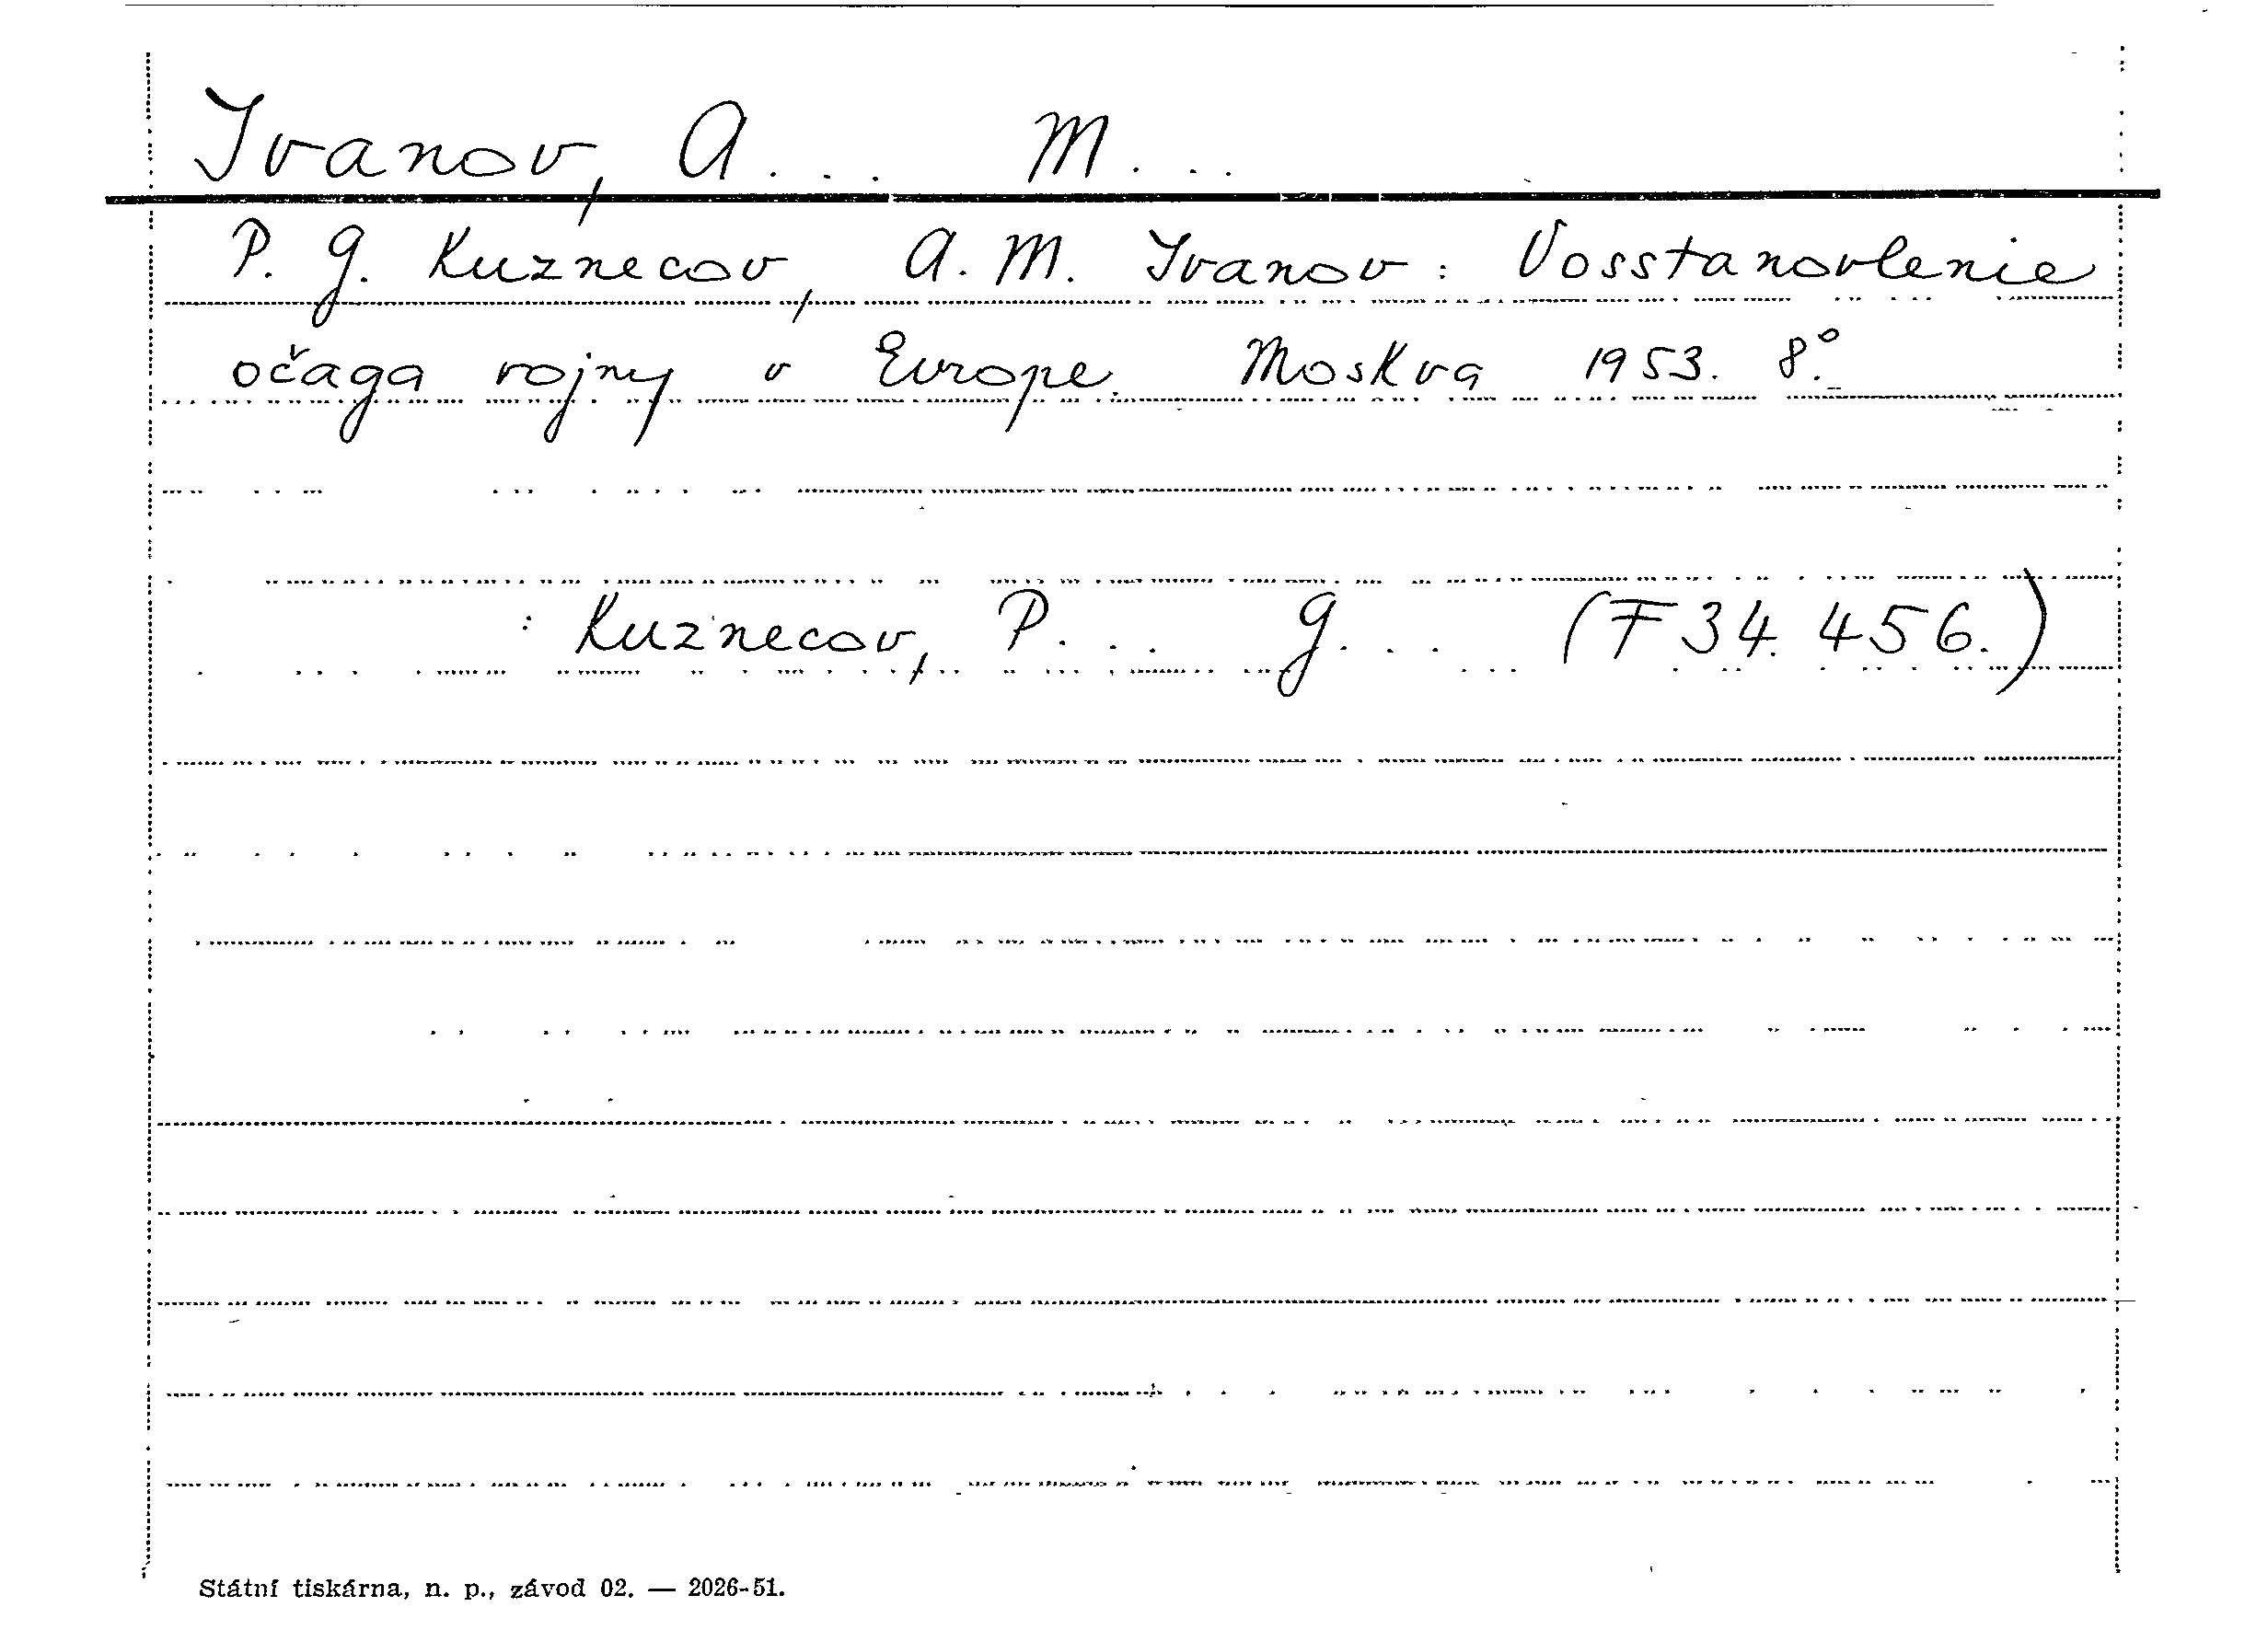 Ivanov, A... M...
P. G. Kuznecov, A. M. Ivanov: Vosstanovlenie
očaga vojny v Evrope. Moskva 1953. 8°.
: Kuznecov, P... G.... (F 34.456.)
Státní tiskárna, n. p., závod 02. — 2026-51.